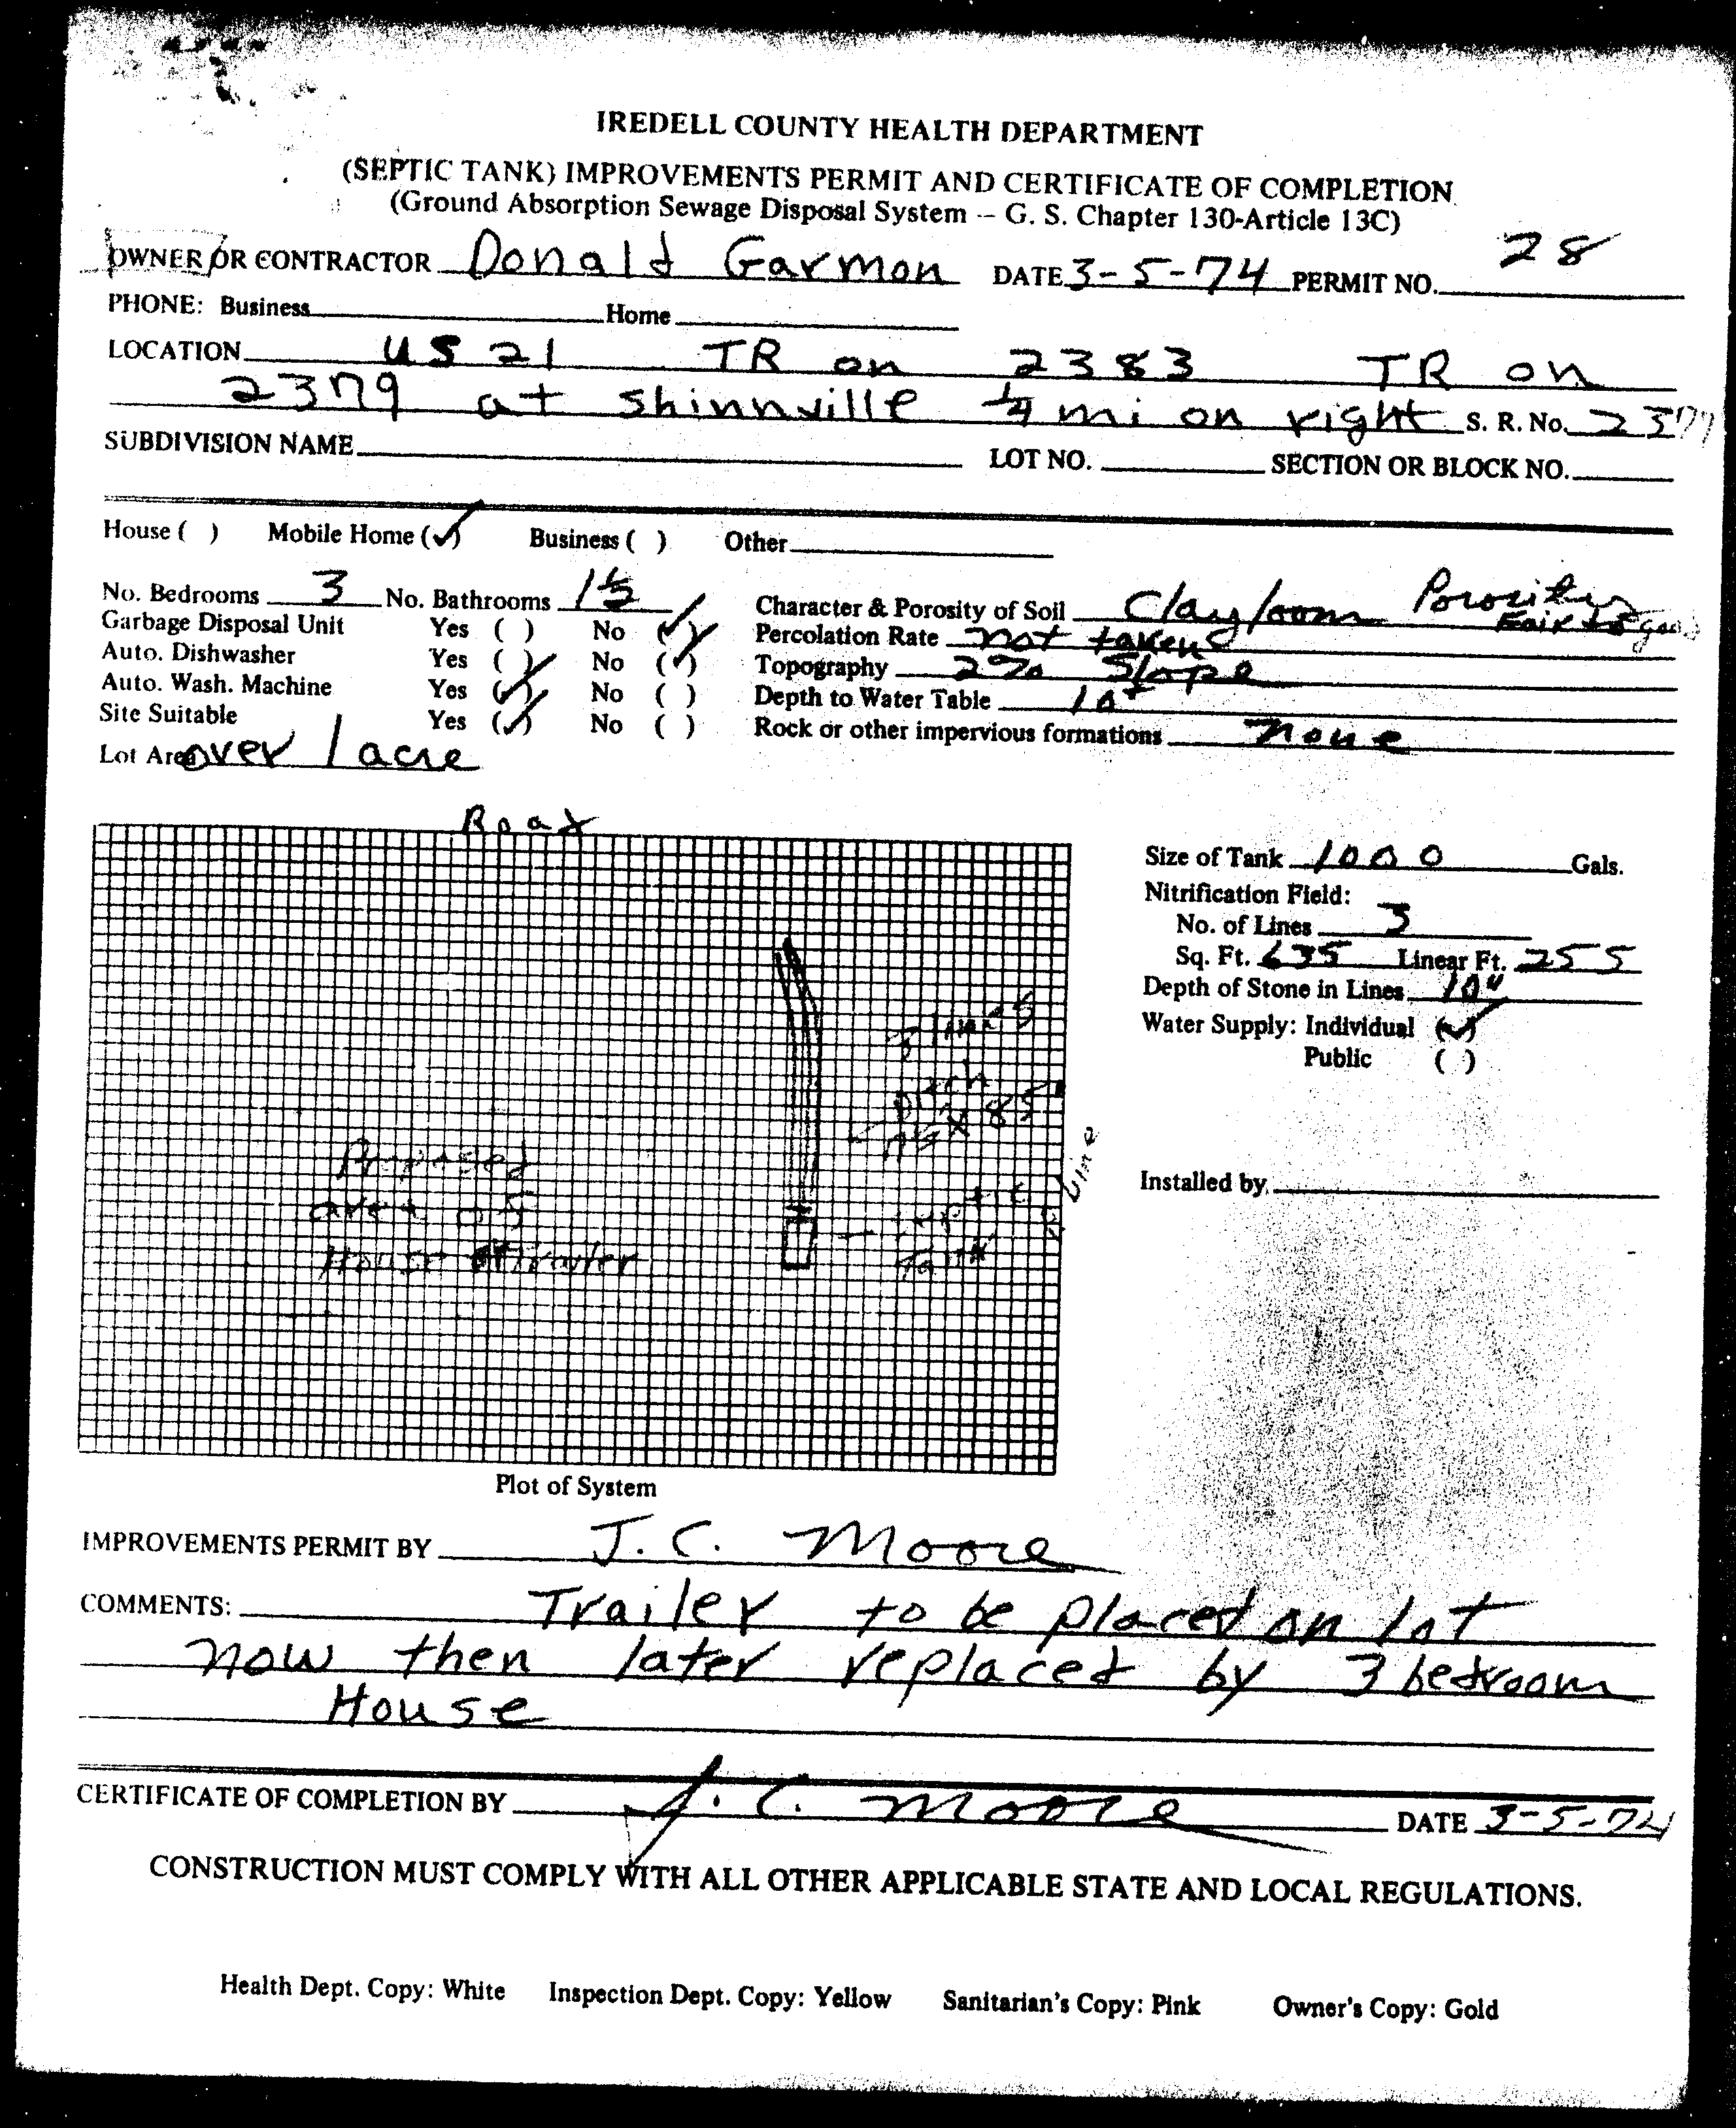 IREDELL COUNTY HEALTH DEPARTMENT
(SEPTIC TANK) IMPROVEMENTS PERMIT AND CERTIFICATE OF COMPLETION
(Ground Absorption Sewage Disposal System -- G. S. Chapter 130-Article 13C)
OWNER OR CONTRACTOR Donald Garmon DATE 3-5-74 PERMIT NO. 28
PHONE: Business Home
LOCATION US 21 TR on 2383 TR on
2379 at Shinnville 1/4 mi on right S. R. No. 2379
SUBDIVISION NAME LOT NO. SECTION OR BLOCK NO.
House ( ) Mobile Home (✓) Business ( ) Other
No. Bedrooms 3 No. Bathrooms 1½
Garbage Disposal Unit Yes ( ) No (✓)
Auto. Dishwasher Yes ( ) No (✓)
Auto. Wash. Machine Yes (✓) No ( )
Site Suitable Yes (✓) No ( )
Lot Area over 1 acre
Character & Porosity of Soil Clay loam Porosity Fair to good
Percolation Rate not taken
Topography 2% Slope
Depth to Water Table 10+
Rock or other impervious formations none
Road
3 lines
Ditch
85'
Proposed
area of
House Trailer
Tank
Line
Plot of System
Size of Tank 1000 Gals.
Nitrification Field:
No. of Lines 3
Sq. Ft. 635 Linear Ft. 255
Depth of Stone in Lines 10"
Water Supply: Individual (✓)
Public ( )
Installed by
IMPROVEMENTS PERMIT BY J. C. Moore
COMMENTS: Trailer to be placed on lot
now then later replaced by 3 bedroom
House
CERTIFICATE OF COMPLETION BY J. C. Moore DATE 3-5-74
CONSTRUCTION MUST COMPLY WITH ALL OTHER APPLICABLE STATE AND LOCAL REGULATIONS.
Health Dept. Copy: White Inspection Dept. Copy: Yellow Sanitarian's Copy: Pink Owner's Copy: Gold